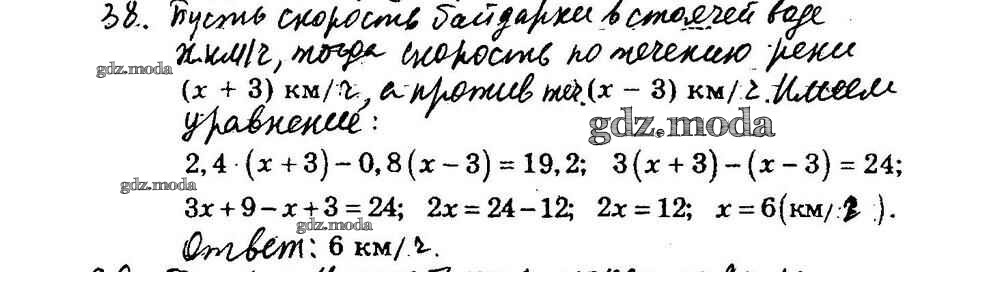 38. Пусть скорость байдарки в стоячей воде
x км/ч, тогда скорость по течению реки
gdz.moda
(x + 3) км/ч, а против теч. (x − 3) км/ч. Имеем
уравнение:
gdz.moda
2,4 · (x + 3) − 0,8 (x − 3) = 19,2; 3(x + 3) − (x − 3) = 24;
gdz.moda
3x + 9 − x + 3 = 24; 2x = 24 − 12; 2x = 12; x = 6 (км/ч).
gdz.moda
Ответ: 6 км/ч.